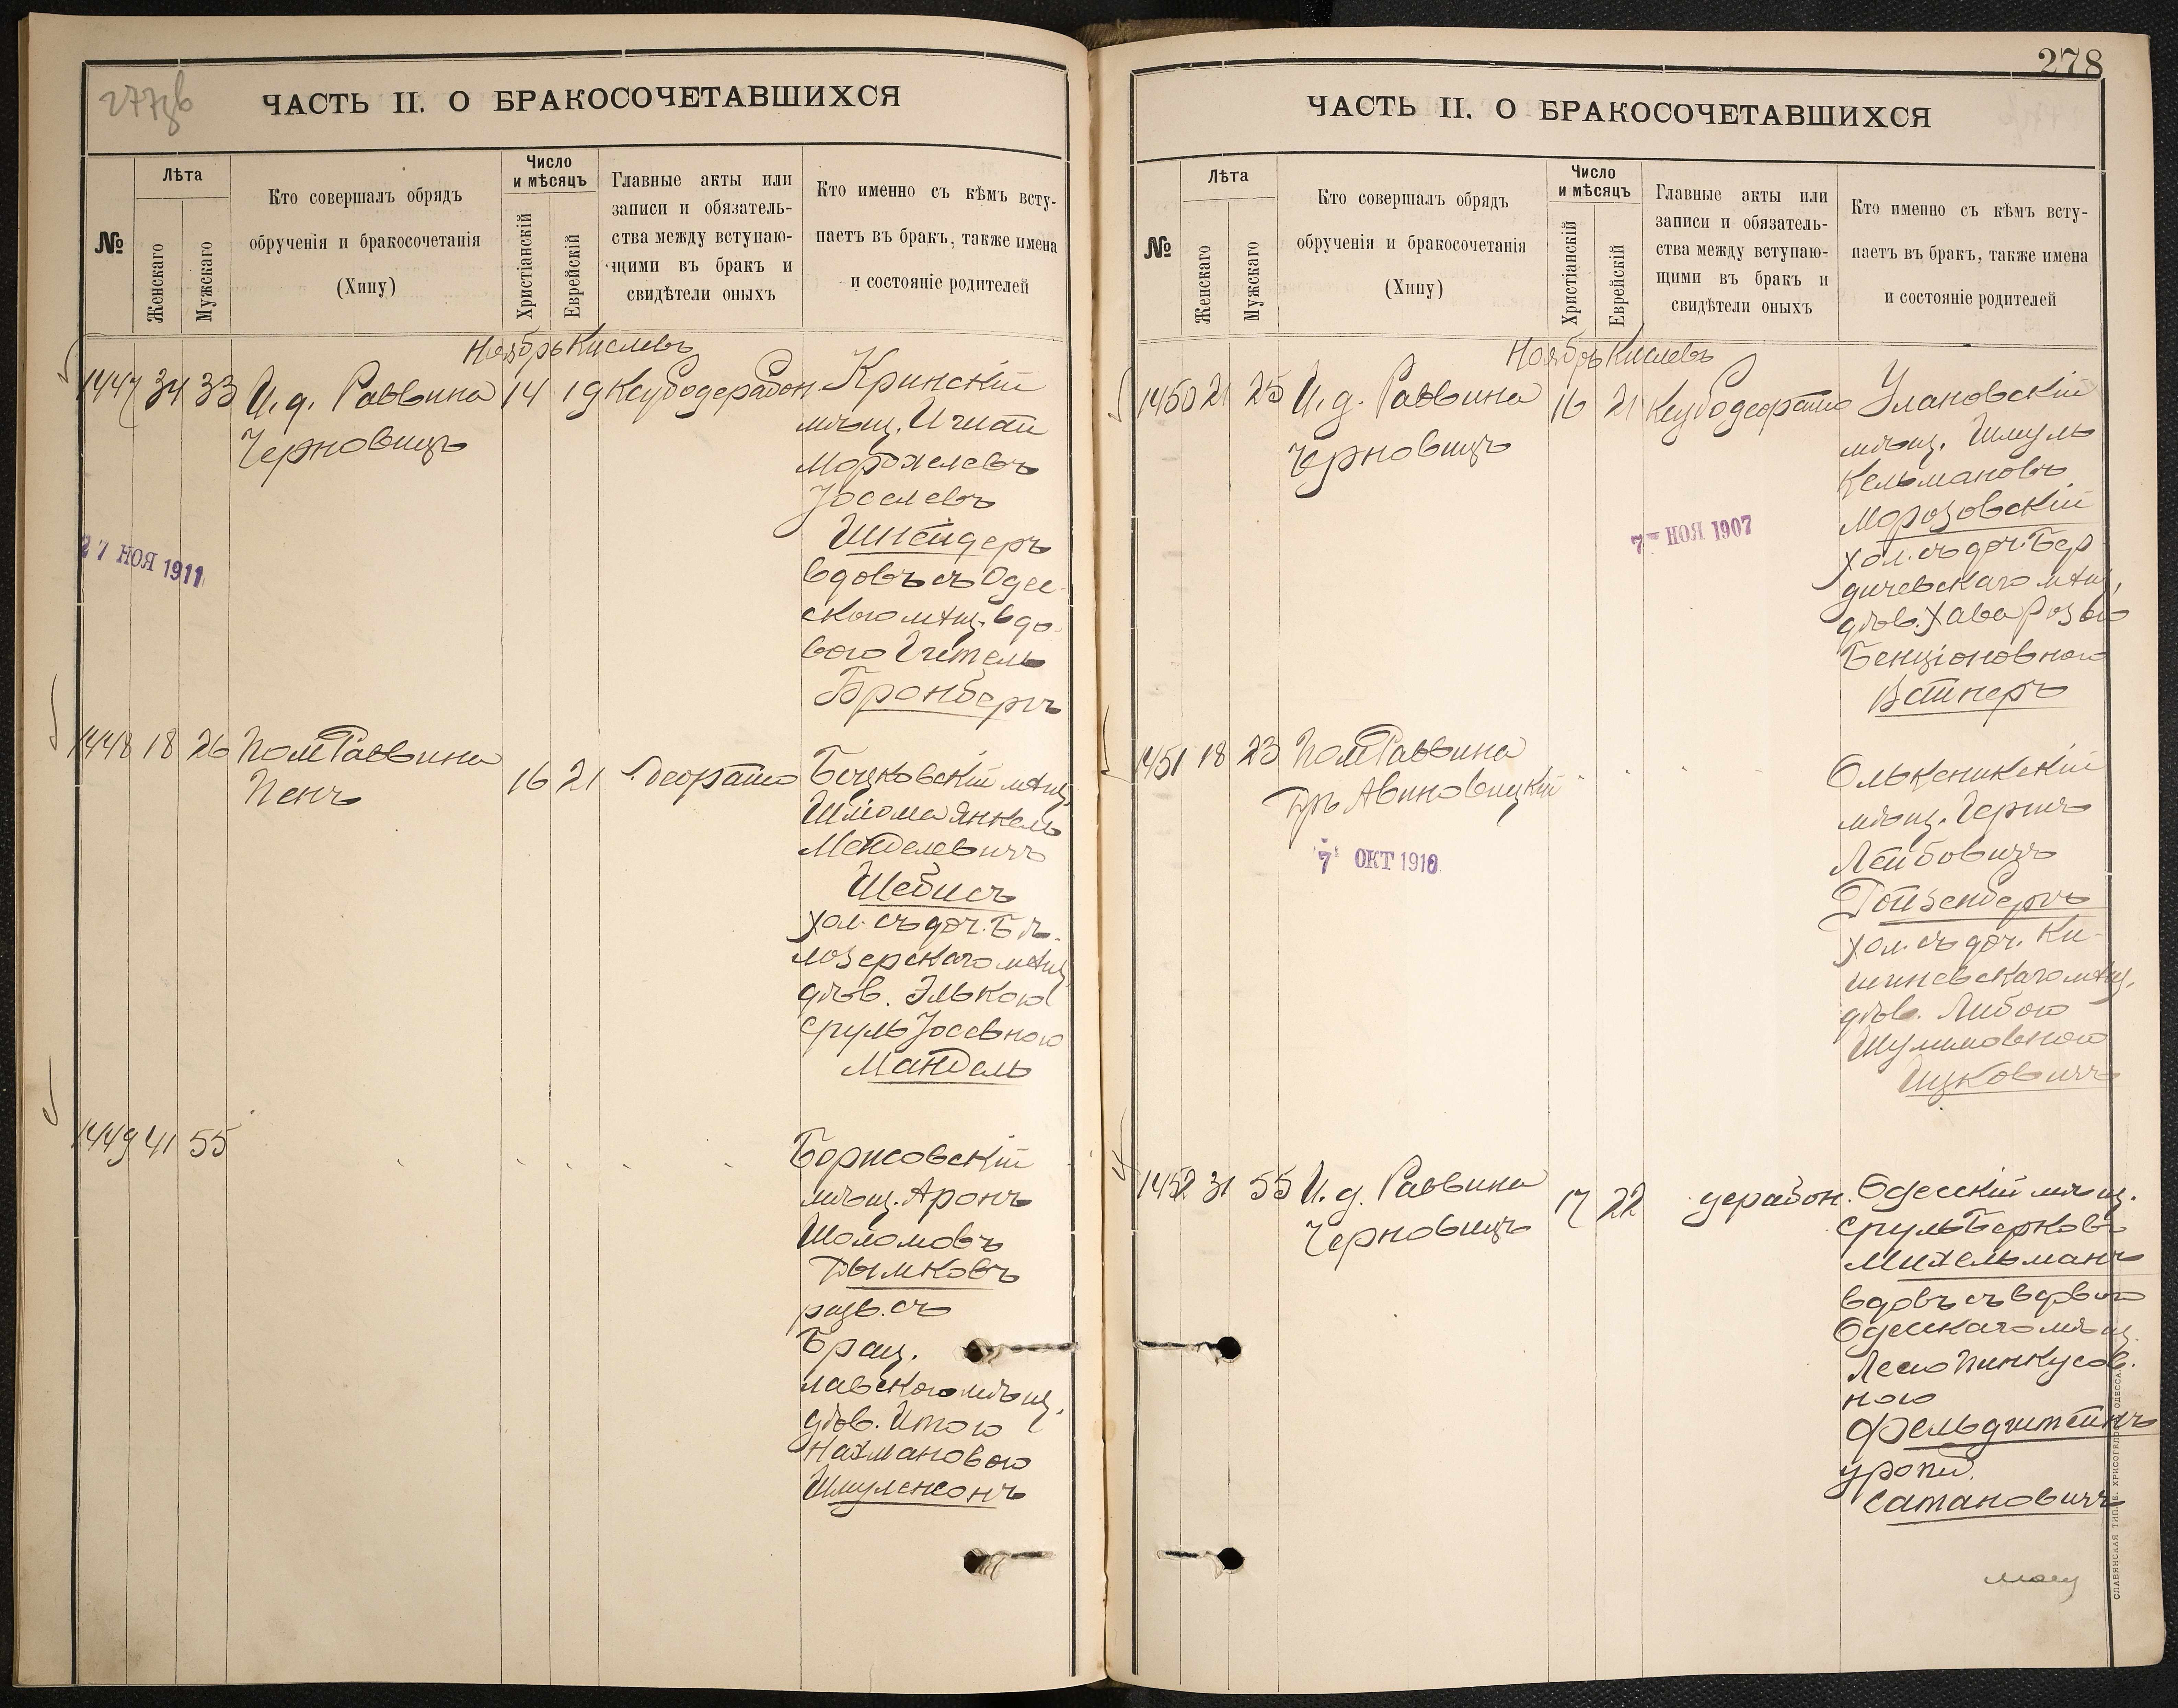 277 об
ЧАСТЬ II. О БРАКОСОЧЕТАВШИХСЯ
№
Лѣта
Женскаго
Мужскаго
Кто совершалъ обрядъ
обрученія и бракосочетанія
(Хипу)
Число
и мѣсяцъ
Христіанскій
Еврейскій
Главные акты или
записи и обязатель-
ства между вступаю-
щими въ бракъ и
свидѣтели оныхъ
Кто именно съ кѣмъ всту-
паетъ въ бракъ, также имена
и состояніе родителей
Ноябрь Кислевъ
1447 34 33 И. д. Раввина 14 19 Ксубодерабон
Черновицъ
Кринскій
мѣщ.
Мордхелевъ
Іоселевъ
Шнейдеръ
вдовъ съ Одес-
скою мѣщ. вдо-
вою Гитель
Бронбергъ
27 НОЯ 1911
1448 18 26 Пом Раввина 16 21 Деорато
Пенъ
мѣщ.
Шлiома Янкель
Менделевичъ
Шебисъ
хол. съ доч. Бѣ-
лозерскаго мѣщ.
дѣв. Элькою
Сруль Іосевною
Мандель
1449 41 55
Борисовскій
мѣщ. Аронъ
Шоломовъ
Дымковъ
разв. съ
Брац-
лавскою мѣщ.
дѣв. Итою
Нахмановою
Шмуленсонъ
278
ЧАСТЬ II. О БРАКОСОЧЕТАВШИХСЯ
№
Лѣта
Женскаго
Мужскаго
Кто совершалъ обрядъ
обрученія и бракосочетанія
(Хипу)
Число
и мѣсяцъ
Христіанскій
Еврейскій
Главные акты или
записи и обязатель-
ства между вступаю-
щими въ бракъ и
свидѣтели оныхъ
Кто именно съ кѣмъ всту-
паетъ въ бракъ, также имена
и состояніе родителей
Ноябрь Кислевъ
1450 21 25 И. д. Раввина 16 21 Ксубодеорато
Черновицъ
Улановскій
мѣщ. Шмуль
Кельмановъ
Морозовскій
хол. съ доч. Бер-
дичевскаго мѣщ.
дѣв. Хава Розею
Бенціоновною
Вайнеръ
7 НОЯ 1907
1451 18 23 Пом Раввина
Бръ Авиновицкій
Олькеникскій
мѣщ. Гершъ
Лейбовичъ
Гойзенбергъ
хол. съ доч. Ки-
шиневскаго мѣщ.
дѣв. Либою
Шулимовною
Ицковичъ
7 ОКТ 1910
1452 31 55 И. д. Раввина 17 22 дерабон.
Черновицъ
Одесскій мѣщ.
Сруль Берковъ
Михельманъ
вдовъ съ вдвою
Одесскаго мѣщ.
Леею Пинкусов-
ною
Фельдштейнъ
урожд.
Сатановичъ
СЛАВЯНСКАЯ ТИП. Е. ХРИСОГЕЛОСЪ, ОДЕССА